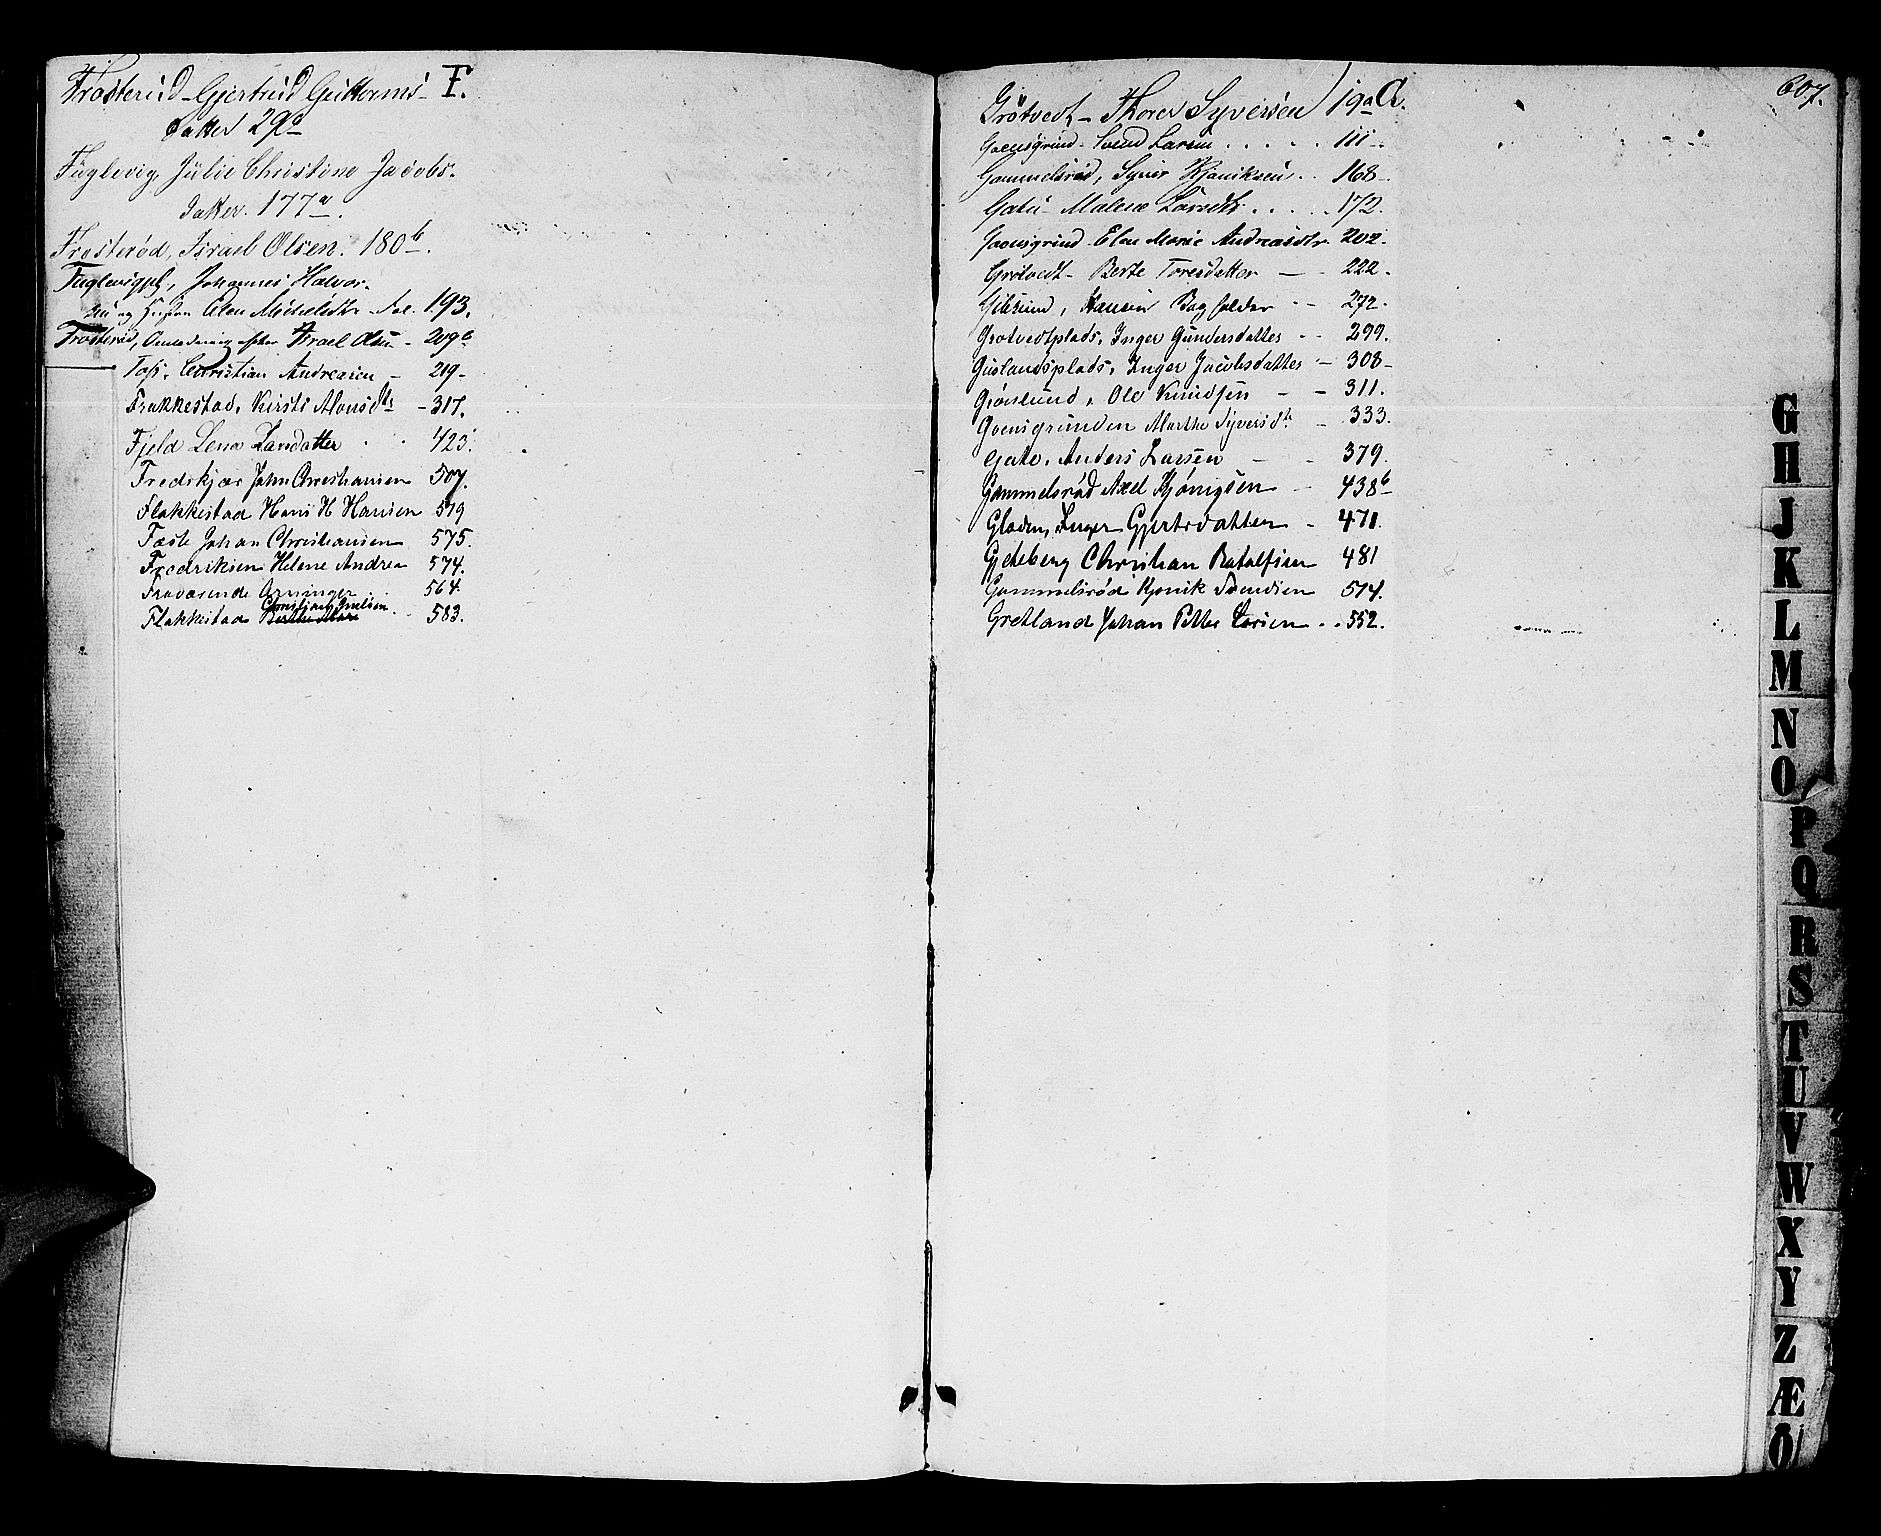 F.
Frosterud - Gjertrud Guttorms-
datter 29a
Fuglevig, Julie Christine Jacobs-
datter. 177a.
Frosterød, Israel Olsen. 180b.
Fuglevigpl, Johannes Halvor-
sen og Hustru Elen Michelsdtr. Fol. 193.
Frosterød, Omladning efter Israel Olsen - 209b
Fos. Christian Andreasen - 219-
Frakkestad, Kirsti Monsdtr - 317.
Fjeld Lena Larsdatter . . 423.
Fredskjær John Christiansen 507.
Flakkestad Hans H Hansen 519
Fæste Johan Christiansen 575.
Fredriksen Helene Andrea 574.
Fraværende Arvinger 564.
Flakkestad Christian Emilsen 583.
607.
G.
Grøtvedt - Thorer Syversen 19a
Goensgrind - Svend Larsen . . . . . 111-
Gammelsrød, Syver Kjøniksen . . 168-
Gatu - Malene Larsdtr . . . . . 172.
Goensgrind - Elen Marie Andreasdtr 202.
Grøtvedt - Berte Toresdatter - - 222.
Gibsund, Hansen Bogholder - - 272.
Grøtvedtplads, Inger Gundersdatter - - 299.
Guslandsplads, Inger Jacobsdatter - 308-
Grønlund, Ole Knudsen - - 311.
Goensgrunden Marthe Syversdtr - 333.
Gate, Anders Larsen - - 379.
Gammelsrød Axel Kjønigsen - 438b
Gloden, Inger Gjertsdatter - 471.
Gjeteberg Christian Rotolfsen 481
Gammelsrød Kjønik Svendsen 574.
Gretland Johan Petter Larsen . . 552.
G
H
J
K
L
M
N
O
P
Q
R
S
T
U
V
W
X
Y
Z
Æ
Ø